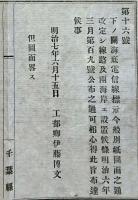 第十六號
下ノ關海底電信線標示今般別紙圖面之通
改定シ線路及南海岸エ設置候條明治六年
三月第百九號公布之通可相心得此旨布達
候事
但圖面畧ス
明治七年六月十五日 工部卿伊藤博文
千葉縣